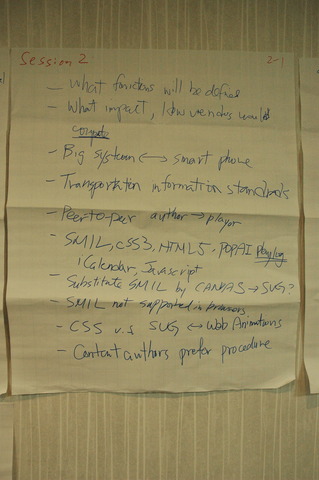 Session 2
2-1
- What functions will be define
- What impact, how vendors would
compete
- Big system <-> smart phone
- Transportation information standards
- Peer-to-peer author -> player
- SMIL, CSS3, HTML5, POPAI Playlog
iCalendar, Javascript
Substitute SMIL by CANVAS -> SVG?
- SMIL not supported in browsers
- CSS v.s SVG <-> Web Animations
- Content authors prefer procedure